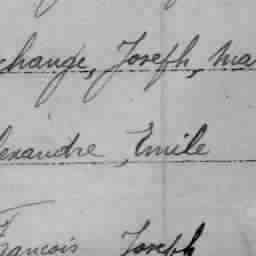 change, Joseph, ma
lexandre, Emile
François Joseph